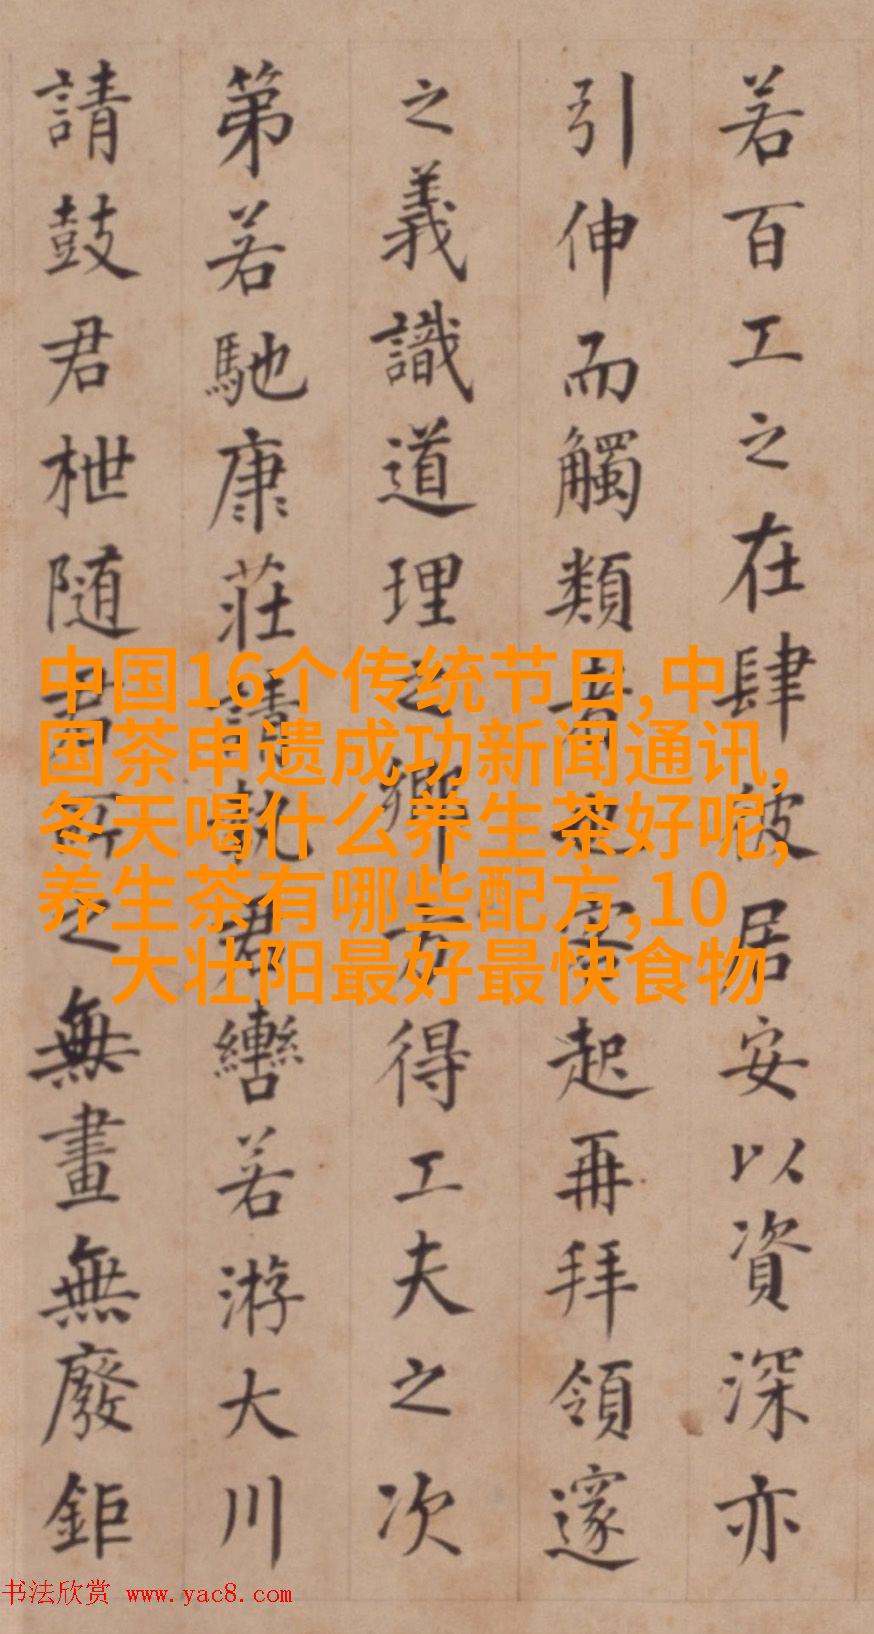 若百工之在肆彼居安以資深亦
引伸而觸類者也客起再拜領邃
之義識道理之鄉方得工夫之次
第若馳康莊請執君轡若游大川
請鼓君枻随君所之無畫無廢鉅
中国16个传统节日,中
国茶申遗成功新闻通讯,
冬天喝什么养生茶好呢,
养生茶有哪些配方,10
大壮阳最好最快食物
书法欣赏 www.yac8.com